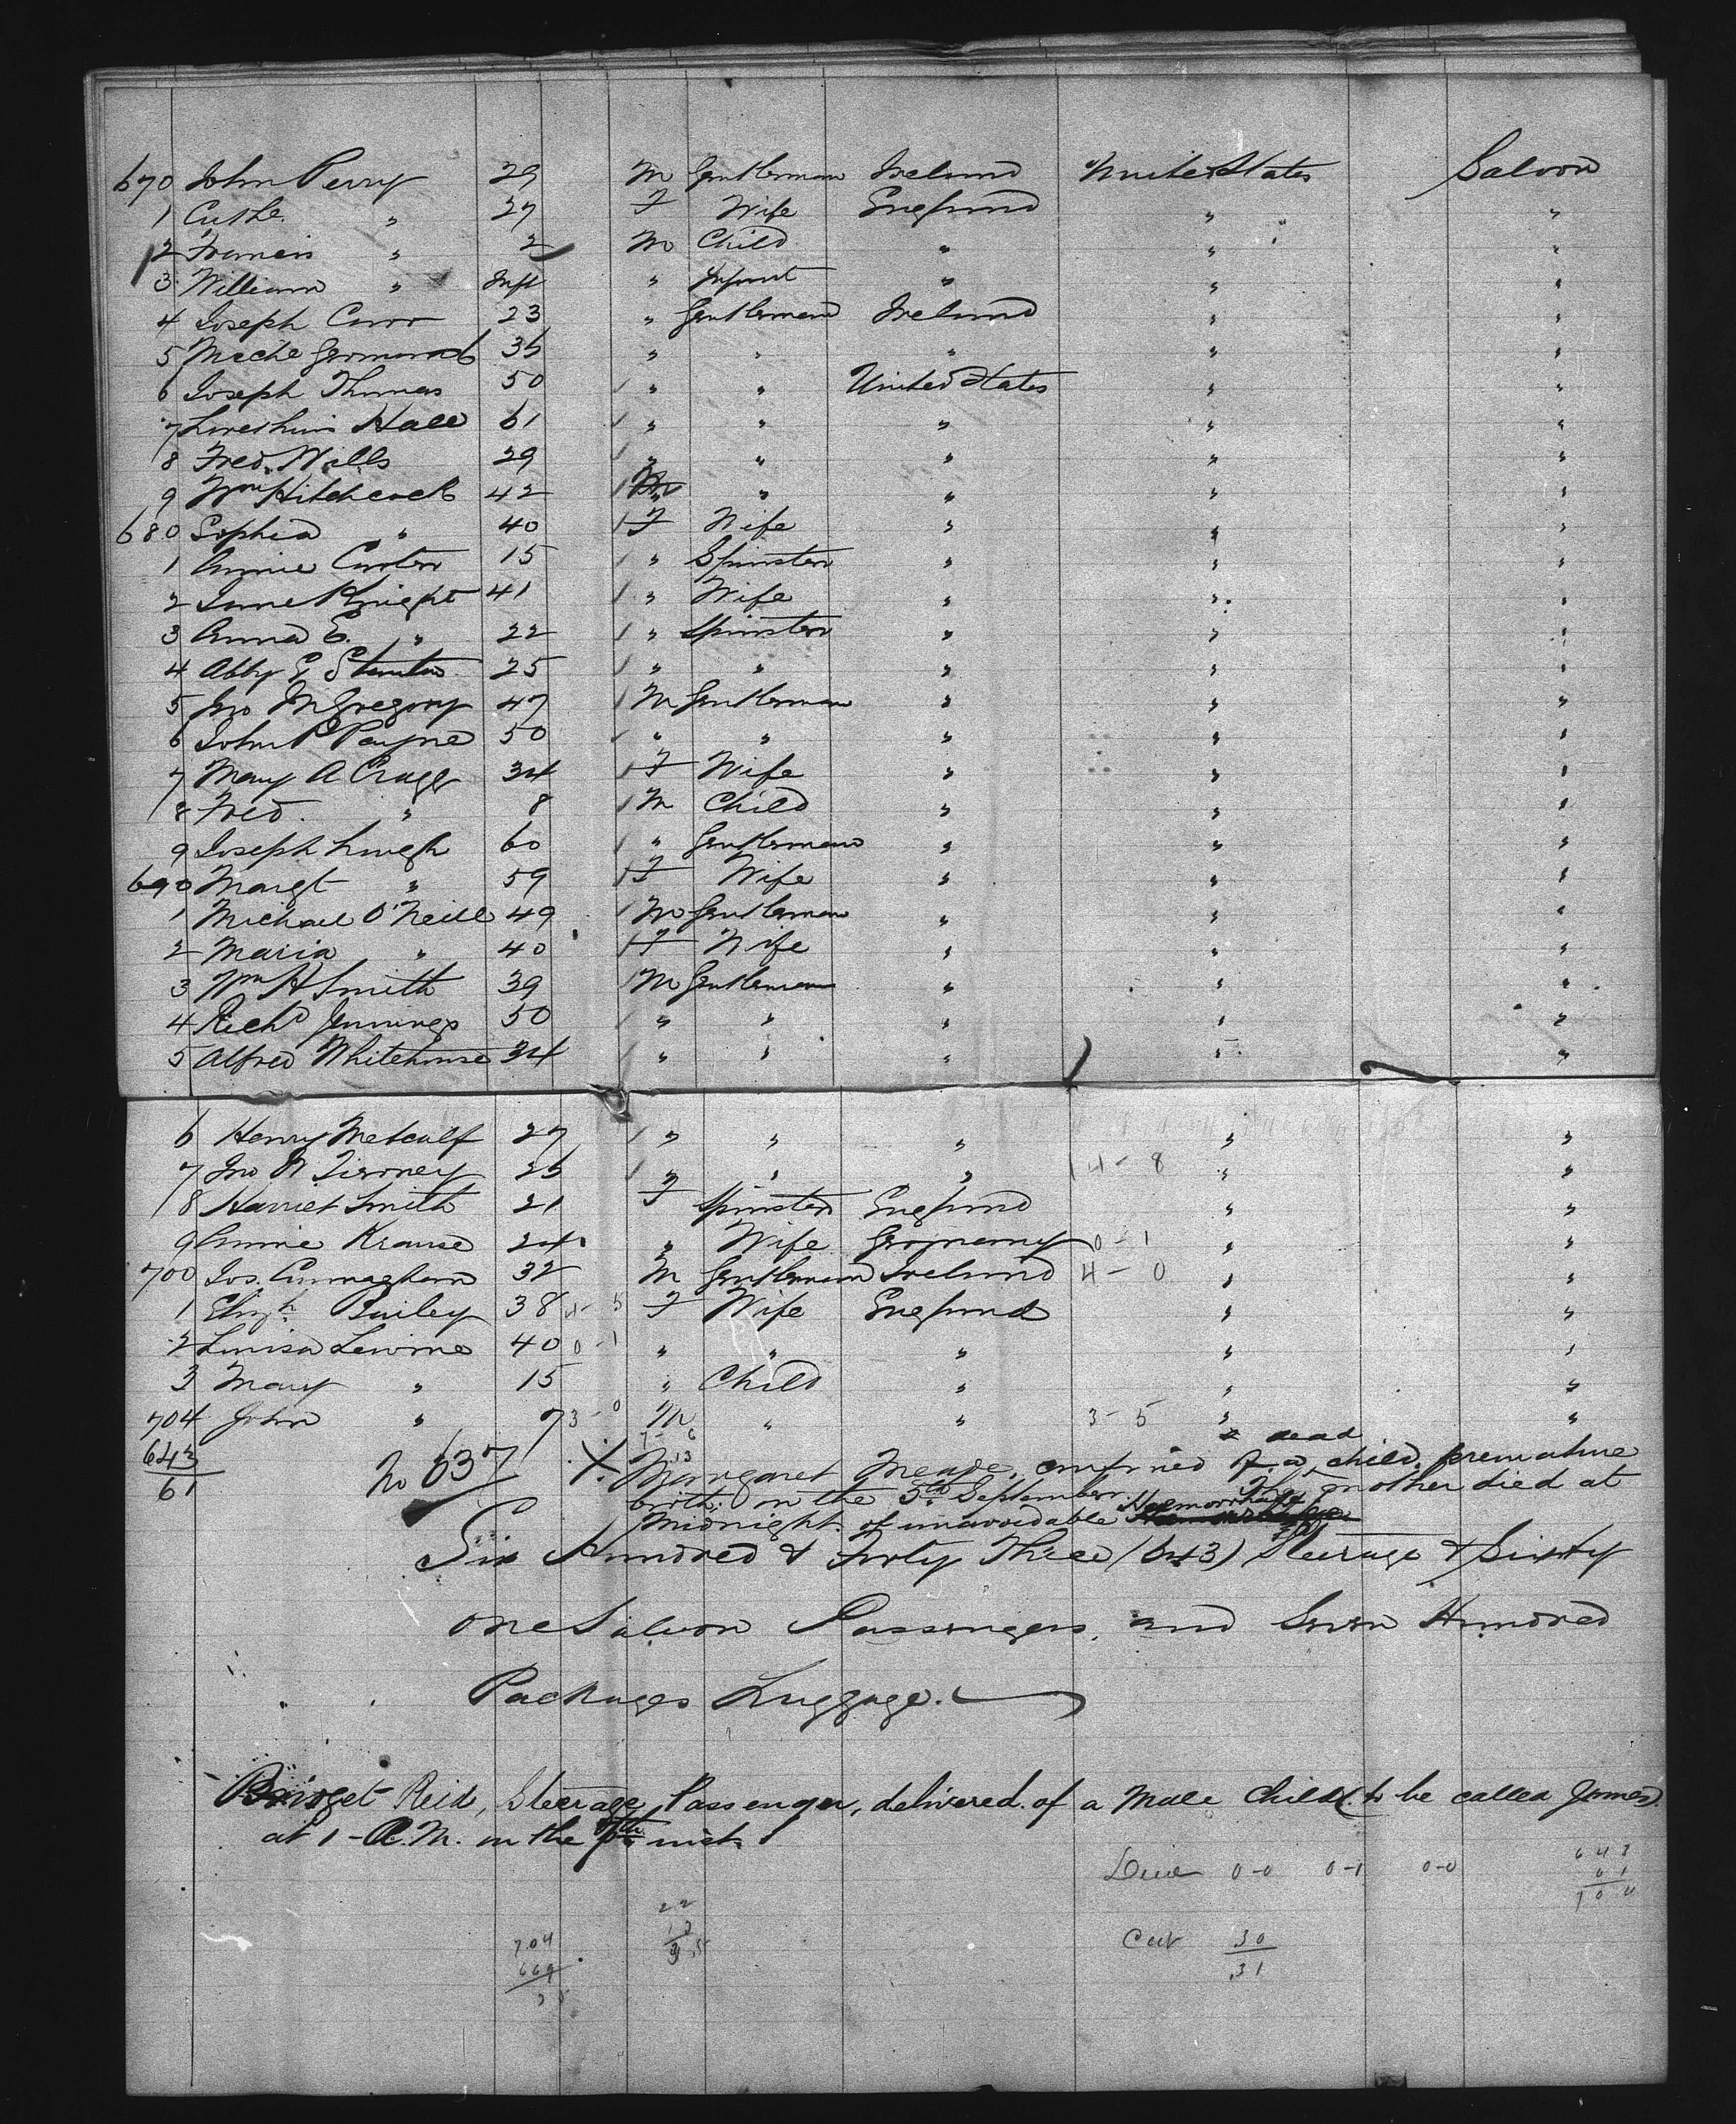 670 John Perry 29 M Gentleman Ireland United States Saloon
1 Cathe. " 27 F Wife England " "
2 Francis " 2 M Child " " "
3 William " Inft " Infant " " "
4 Joseph Carr 23 " Gentleman Ireland " "
5 36 " " " " "
6 Joseph Thomas 50 " " United States " "
7 Hall 61 " " " " "
8 Fred. Wills 29 " " " " "
9 Wm Hitchcock 42 " " " " "
680 Sophia " 40 F Wife " " "
1 Annie Carter 15 " Spinster " " "
2 Jane Knight 41 " Wife " " "
3 Anna E. " 22 " Spinster " " "
4 Abby G Stanton 25 " " " " "
5 Jno McGregory 47 M Gentleman " " "
6 John P Payne 50 " " " " "
7 Mary A Cragg 34 F Wife " " "
8 Fred. " 8 M Child " " "
9 Joseph 60 " Gentleman " " "
690 Margt " 59 F Wife " " "
1 Michael O'Neill 49 M Gentleman " " "
2 Maria " 40 F Wife " " "
3 Wm H Smith 39 M Gentleman " " "
4 Richd Jennings 50 " " " " "
5 Alfred Whitehouse 34 " " " " "
6 Henry Metcalf 27 " " " " "
7 Jno R Tierney 26 " " " 4-8 " "
8 Harriet Smith 21 F Spinster England " "
9 Annie Krause 24 " Wife Germany 0-1 " "
700 Jos. Cunnagham 32 M Gentleman Ireland 4-0 " "
1 Elizh. Bailey 38 4-5 F Wife England " "
2 Louisa Levine 40 0-1 " " " " "
3 Mary " 15 " Child " " "
704 John " 7 3-0 M " " 3-5 " "
643
61
No 637 X. Margaret Meade, confined of a dead child. premature
birth. on the 5th September. The mother died at
Midnight. of unavoidable Haemorrhage
Six Hundred & Forty Three (643) Steerage & Sixty
one Saloon Passengers, and Seven Hundred
Packages Luggage.
Bridget Reid, Steerage Passenger, delivered. of a Male Child (to be called James)
at 1-A.M. on the 7th inst.
0-0 0-1 0-0
643
61
704
22
13
35
704
669
35
30
31